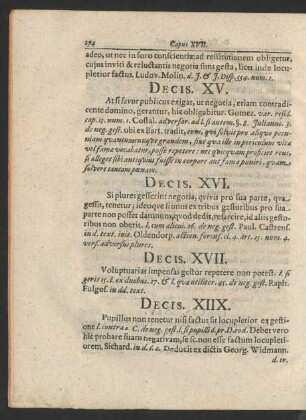 274 Caput XVII.
adeo, ut nec in foro conscientiæ ad restitutionem obligetur,
cujus inviti & reluctantis negotia sunt gesta, licet inde locu-
pletior factus. Ludov. Molin. d. J. & J. Disp. 554. num. 1.
DECIS. XV.
At si favor publicus exigat, ut negotia, etiam contradi-
cente domino, gerantur, hic obligabitur. Gomez. var. resol.
cap. 17. num. 1. Costal. adversar. ad l. si autem. 8. §. Julianus. 3.
de neg. gest. ubi ex Bart. tradit, eum, qui solvit pro aliquo pecu-
niam quantumcunque grandem, sine qua ille in periculum vitæ
vel fama vocabatur, posse repetere: nec quicquam proficiet reus,
si alleget sibi antiquius fuisse in corpore aut fama puniri, quam
solvere tantam pænam.
DECIS. XVI.
Si plures gesserint negotia, quivis pro sua parte, quam
gessit, tenetur; ideoque si unus ex tribus gestoribus pro sua
parte non posset damnum, quod dedit, resarcire, id aliis gesto-
ribus non oberit. l. cum alicui. 26. de neg. gest. Paul. Castrens.
in d. text. init. Oldendorp. action. forens. cl. 4. Art. 15. num. 4.
vers. adversus plures.
DECIS. XVII.
Voluptuarias impensas gestor repetere non potest. l. si
gerit 15. l. ex duobus. 27. & l. quæ utiliter. 45. de neg. gest. Raph.
Fulgos. in dd. text.
DECIS. XIIX.
Pupillus non tenetur nisi factus sit locupletior ex gesti-
one l. contra 2. C. de neg. gest. l. si pupilli 6. pr. D. eod. Debet vero
hic probare suam negativam, se sc. non esse factum locupleti-
orem, Sichard. in d. l. 2. Deducit ex dictis Georg. Widmann.
d. tr.